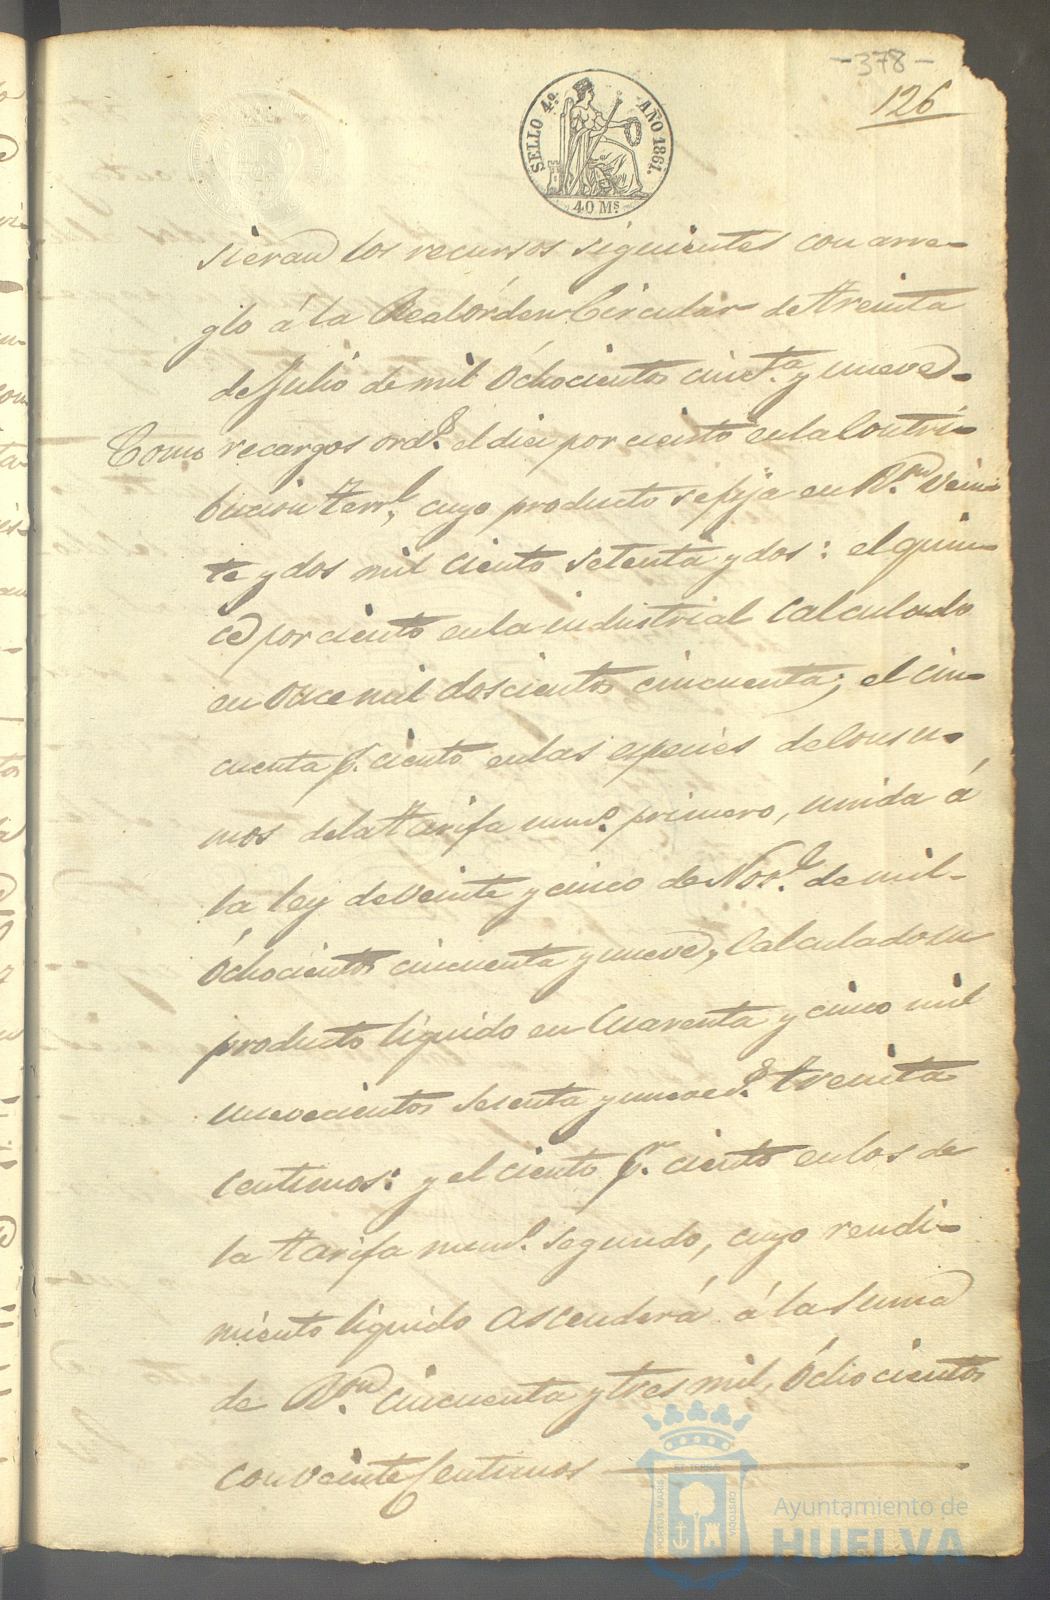 -378-
126
SELLO 4.º AÑO 1861.
40 Ms
sieran los recursos siguientes con arre-
glo á la Real órden Circular de treinta
de Julio de mil Ochocientos cincta. y nueve.
Como recargos ords. el diez por ciento en la Contri-
bucion terrl., cuyo producto se fija en Rs.vn vein-
te y dos mil ciento setenta y dos: el quin-
ce por ciento en la industrial calculado
en once mil doscientos cincuenta; el cin-
cuenta p. ciento en las especies de consu-
mos de la tarifa numo. primero, unida á
la ley de veinte y cinco de Nove. de mil
Ochocientos cincuenta y nueve, calculado su
producto líquido en Cuarenta y cinco mil
nuevecientos sesenta y nueve rs. treinta
centimos: y el ciento pr. ciento en los de
la tarifa numo. segundo, cuyo rendi-
miento líquido ascenderá á la suma
de Rs.vn cincuenta y tres mil, Ochocientos
con veinte Centimos
PORTUS MARIS ET TERRAE CUSTODIA
Ayuntamiento de
HUELVA